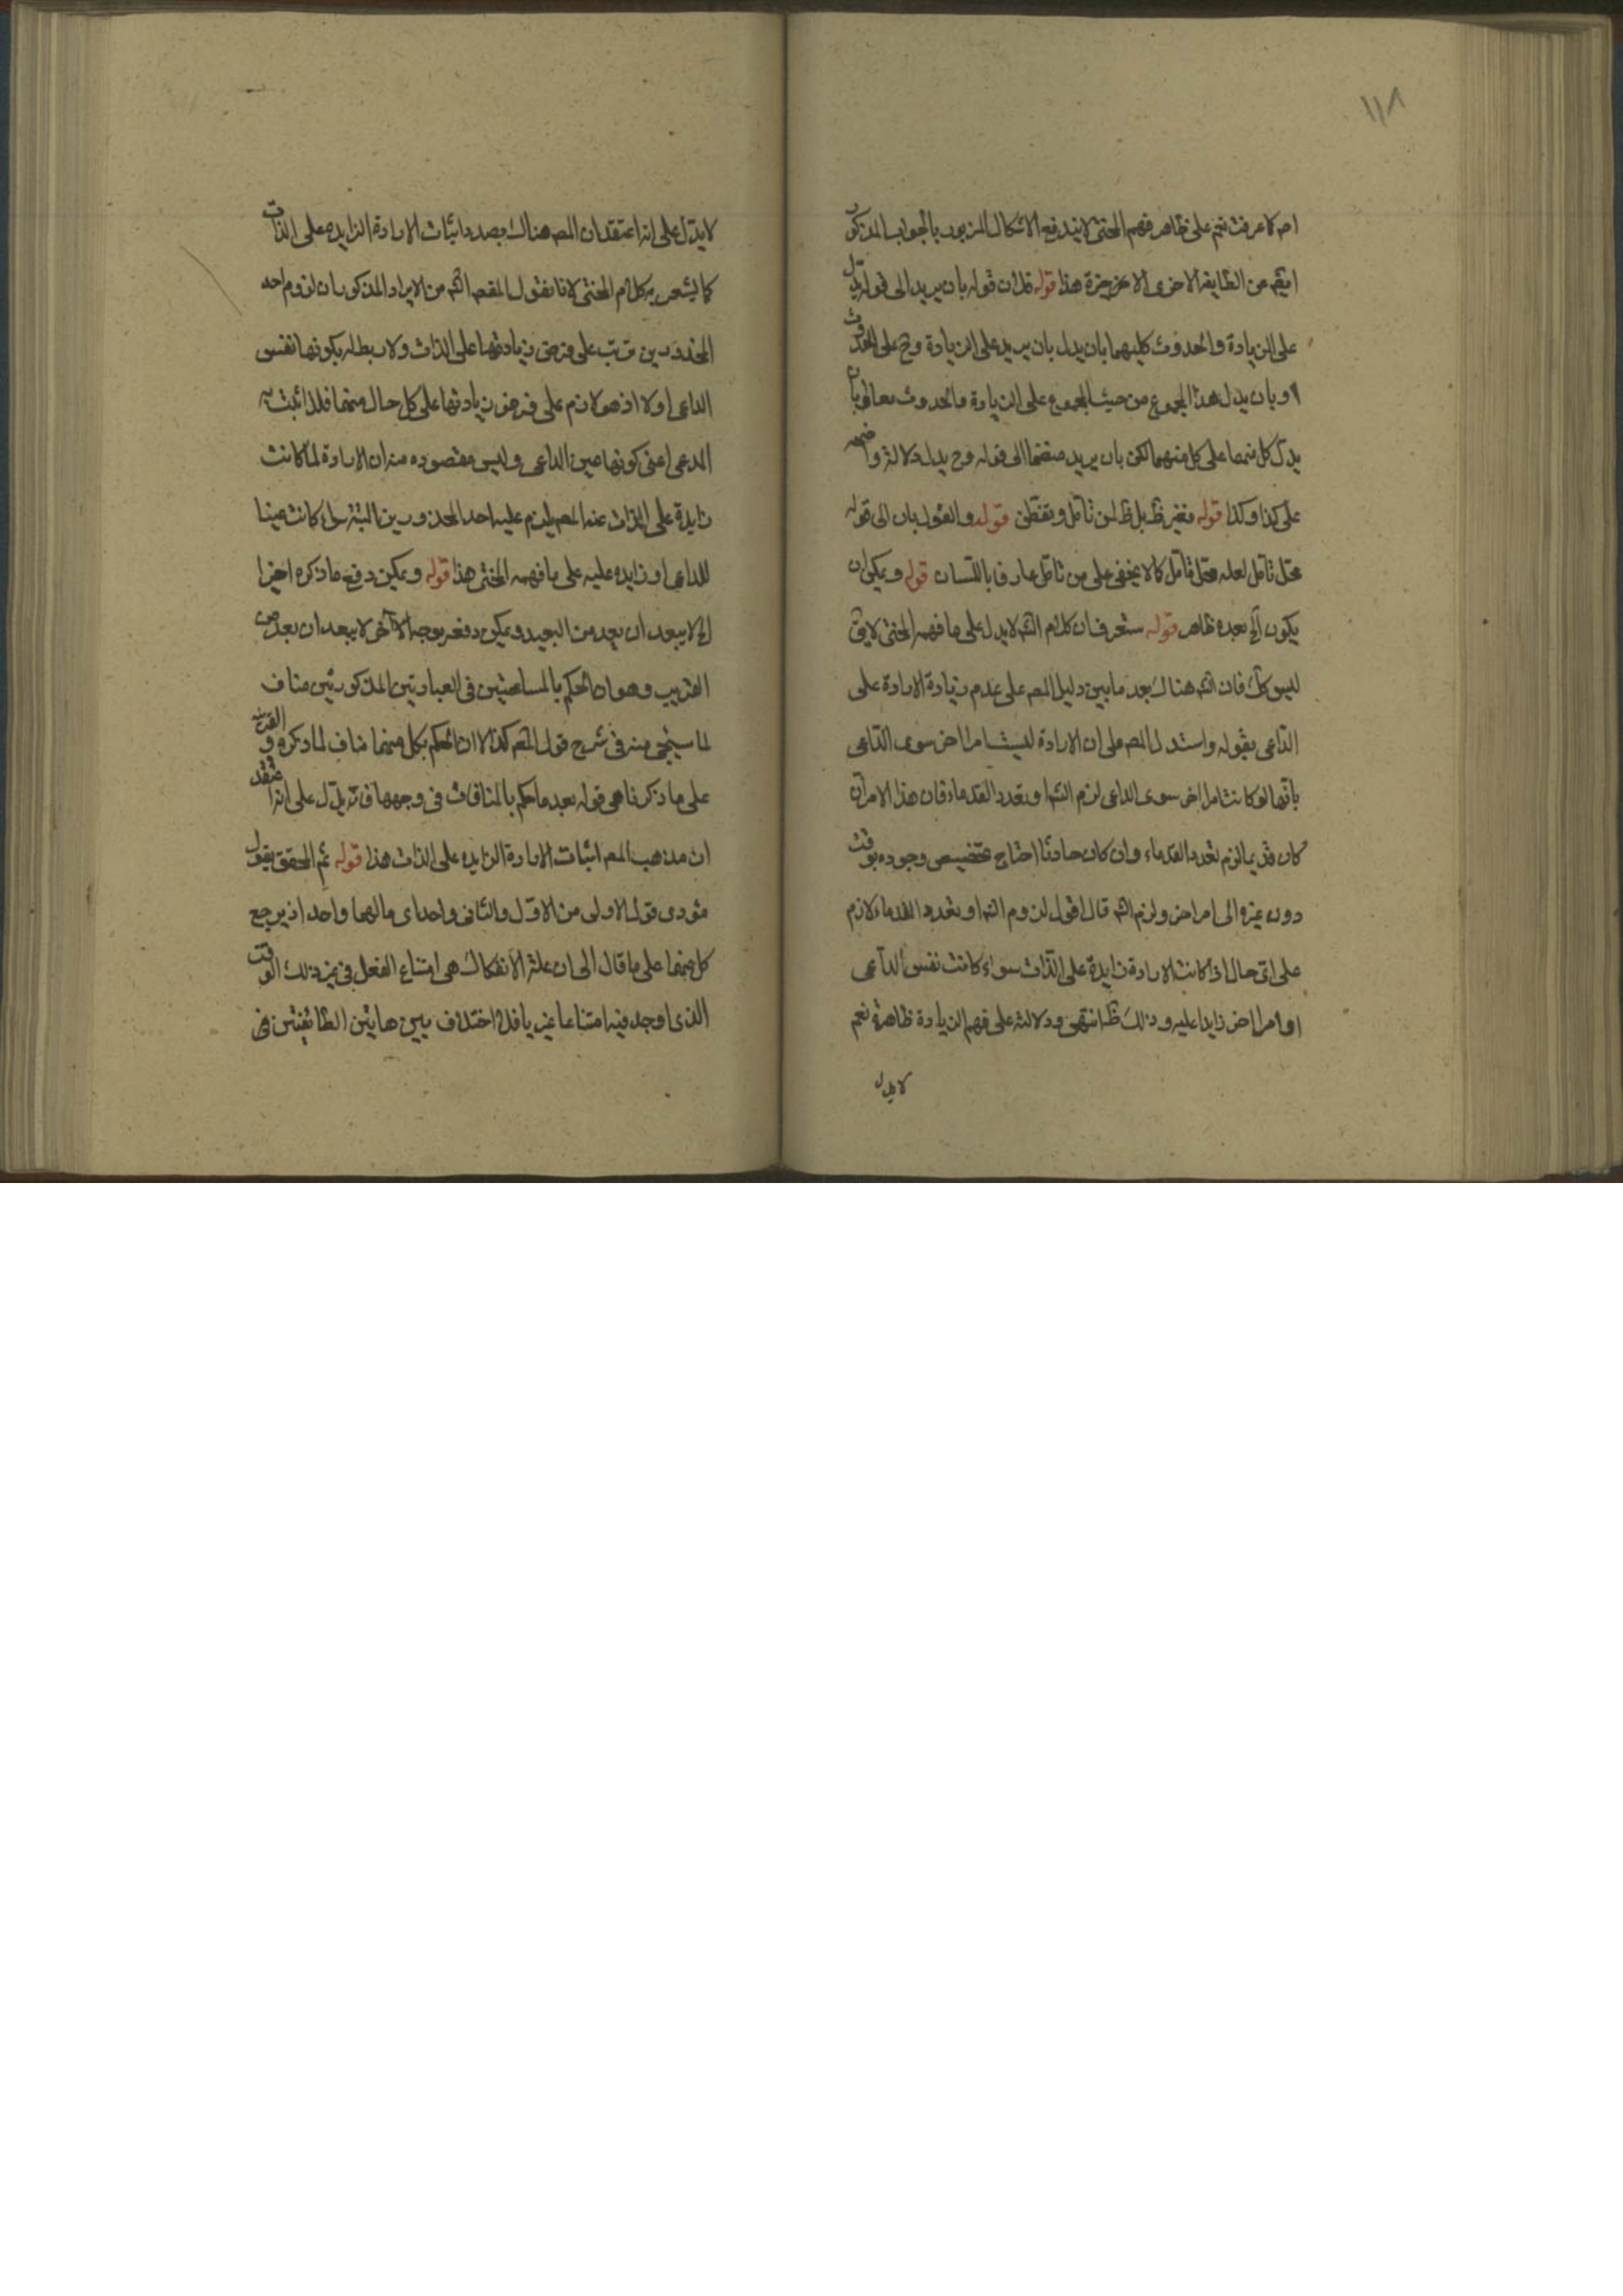 ١١٨
امر كما عرفت نعم على ظاهر فهم المحشى لا يندفع الاشكال المزبور بالجواب المذكور
ايضا من الطايفة الاخرى الاخيرة هذا قوله فلان قوله بان يريد الى قوله يدل
على الزيادة والحدوث كليهما بان يدل بان يريد على الزيادة وح على الحدوث
او بان يدل هذا المجموع من حيث المجموع على الزيادة والحدوث معا لا بان
يدل كل منهما على كل منهما لكن بان يريد منضما الى قوله وح يدل دلالة واضحه
على كذا وكذا قوله فغير ظ بل ظ لمن تامل وتفطن قوله والقول بان الى قوله
محل تامل لعله محل تامل كما لا يخفى على من تامل عارفا باللسان قوله ويمكن ان
يكون الخ بعده ظاهر قوله ستعرف ان كلام الشه لا يدل على ما فهمه المحشى لا يق
ليس كك فان الشه هناك بعد ما بين دليل المصه على عدم زيادة الارادة على
الداعى بقوله واستدل المصه على ان الارادة ليست امرا اخر سوى الداعى
بانها لو كانت امرا اخر سوى الداعى لزم التسه او تعدد القدماء فان هذا الامر ان
كان قديما لزم تعدد القدماء وان كان حادثا احتاج تخصيص وجوده بوقت
دون غيره الى امر اخر ولزم التسه قال اقول لزوم التسه او تعدد القدماء لازم
على اى حال اذا كانت الارادة زايدة على الذات سواء كانت نفس الداعى
او امرا اخر زايدا عليه وذلك ظ انتهى ودلالته على فهم الزيادة ظاهرة نعم
لا يدل
لا يدل على انه اعتقد ان المصه هناك بصدد اثبات الارادة الزايده على الذات
كما يشعر به كلام المحشى لانا نقول المقصه الشه من الايراد المذكور ان لزوم احد
المحذورين مترتب على فرض زيادتها على الذات ولا ربط له بكونها نفس
الداعى اولا اذ هو لازم على فرض زيادتها على كل حال منهما فلذا اثبت به
المدعى اعنى كونها عين الداعى وليس مقصوده منه ان الارادة لما كانت
زايدة على الذات عند المصه يلزم عليه احد المحذورين البتة سواء كانت عينا
للداعى او زايده عليه على ما فهمه المحشى هذا قوله ويمكن دفع ما ذكره اخيرا
الخ لا يبعد ان يعد من البعيد ويمكن دفعه بوجه الاخر لا يبعد ان يعد من
القريب وهو ان الحكم بالمسامحتين فى العبارتين المذكورتين مناف
لما سيجئ منه فى شرح قول الشه كذا الا ان الحكم بكل منهما مناف لما ذكره والقرينه
على ما ذكرنا هى قوله بعد ما حكم بالمنافات فى وجهها فانه يدل على انه اعتقد
ان مذهب المصه اثبات الارادة الزايده على الذات هذا قوله ثم المحقق يقول
مؤدى قول الاولى من الاول والثانى واحد اى مالهما واحد اذ يرجع
كل منهما على ما قال الى ان علة الانفكاك هى امتناع الفعل فى غير ذلك الوقت
الذى اوجد فيه امتناعا غيريا فلا اختلاف بين هاتين الطائفتين فى